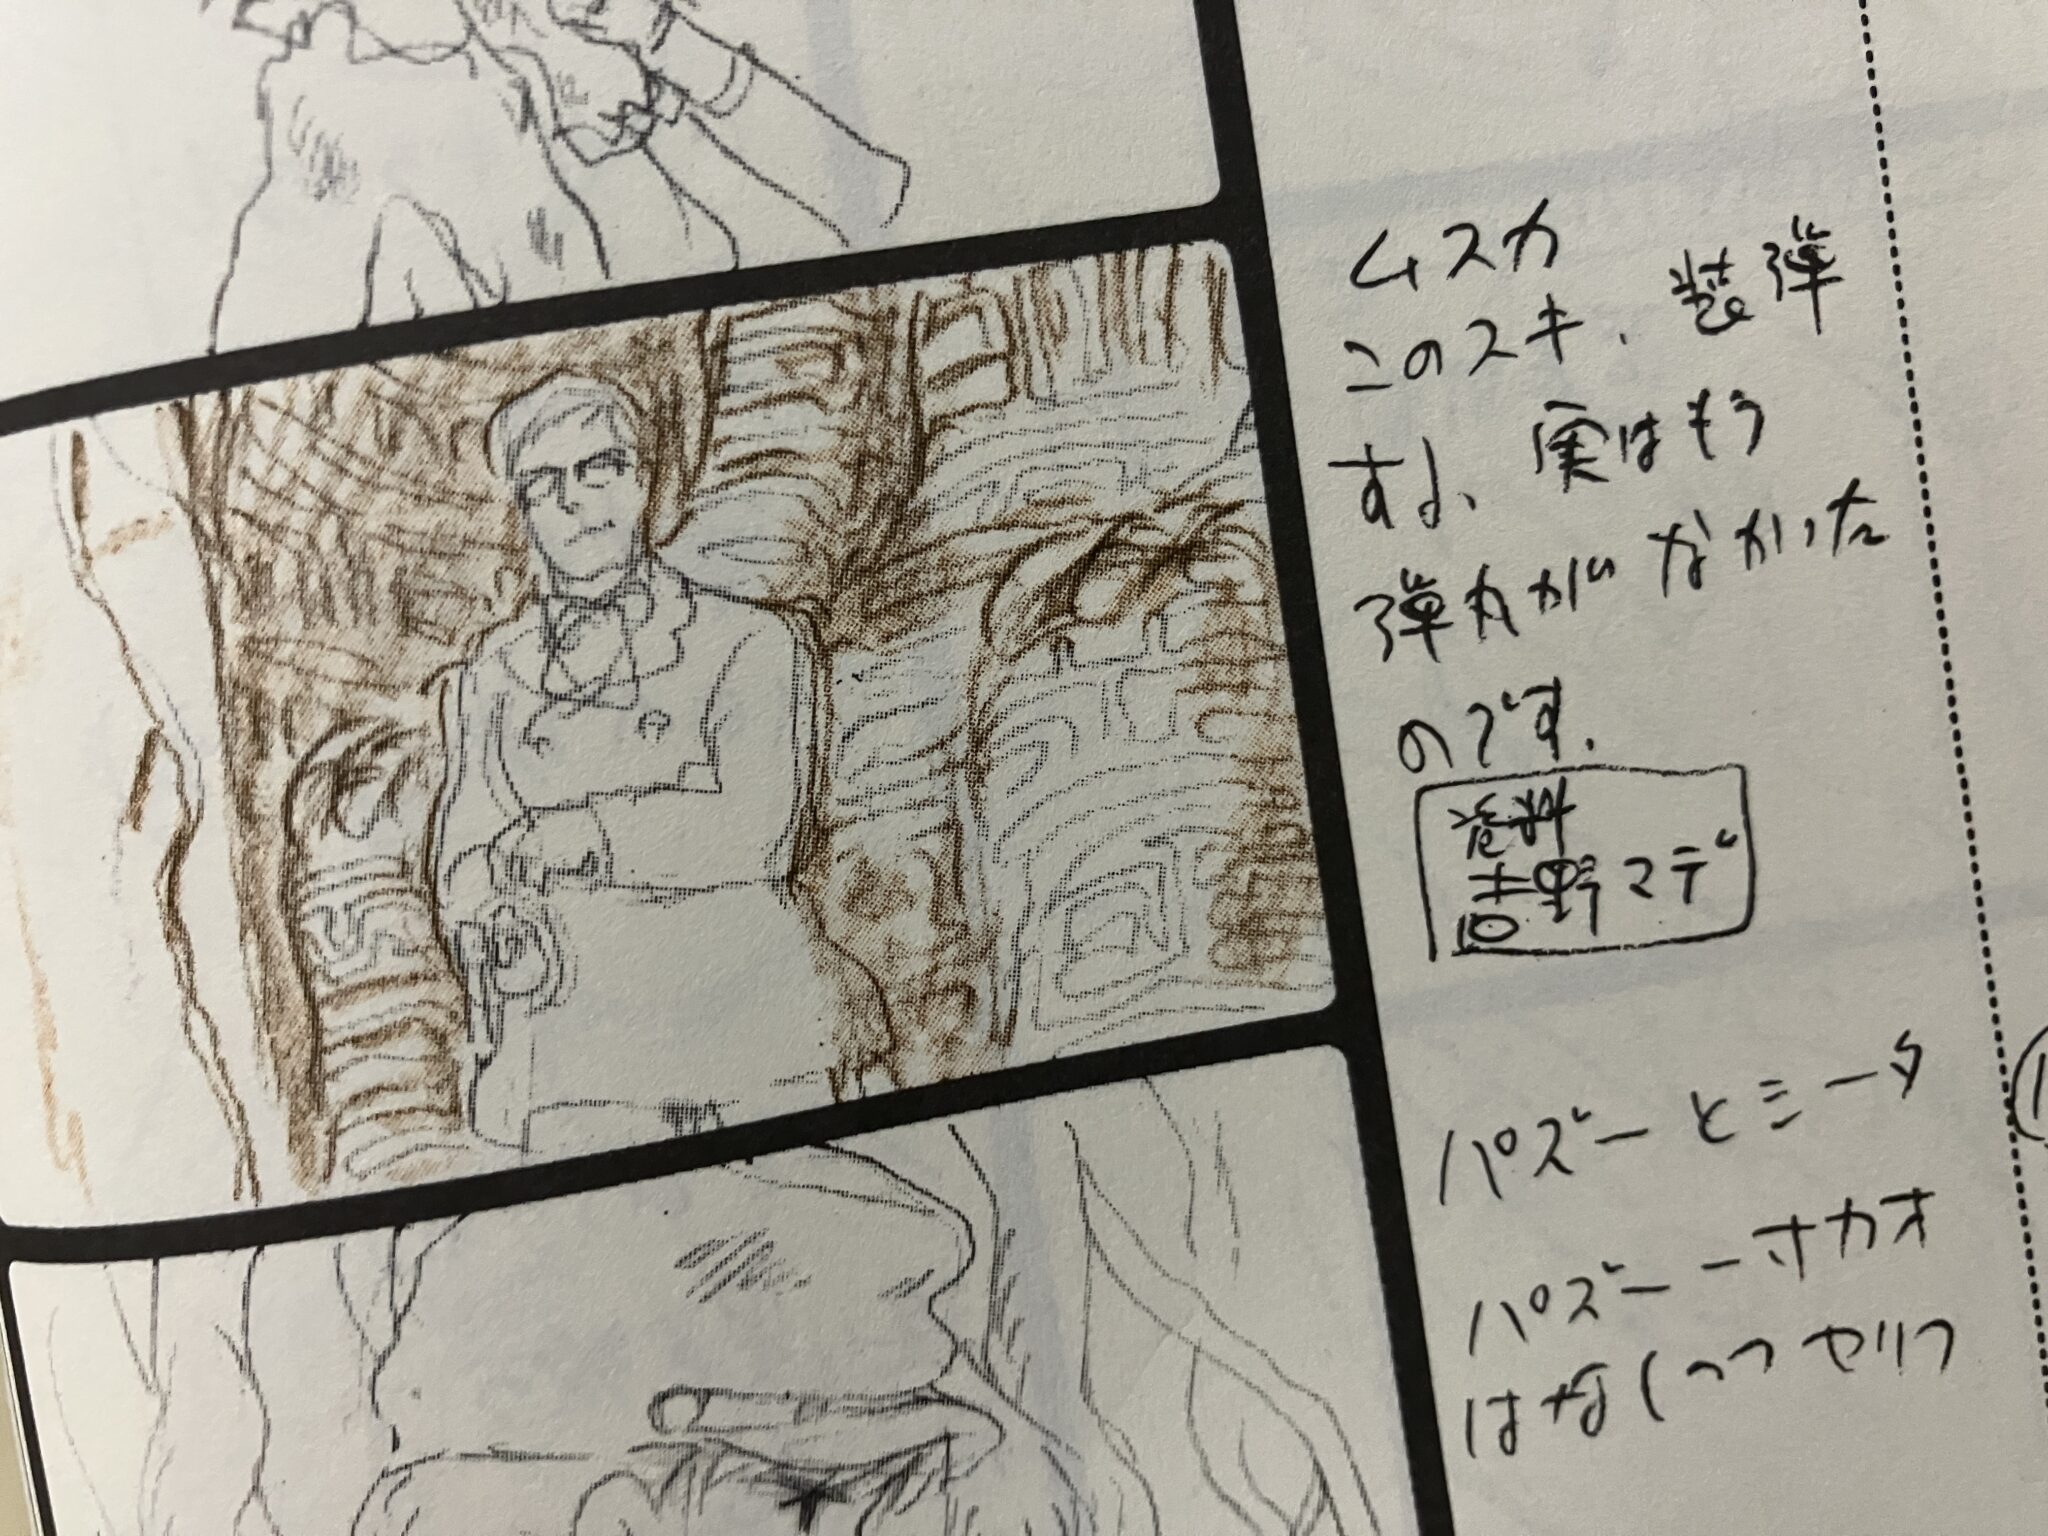 ムスカ
このスキ、装弾
する、実はもう
弾丸がなかった
のです.
資料
吉野マデ
パズーとシータ
パズー一寸カオ
はなしつつセリフ